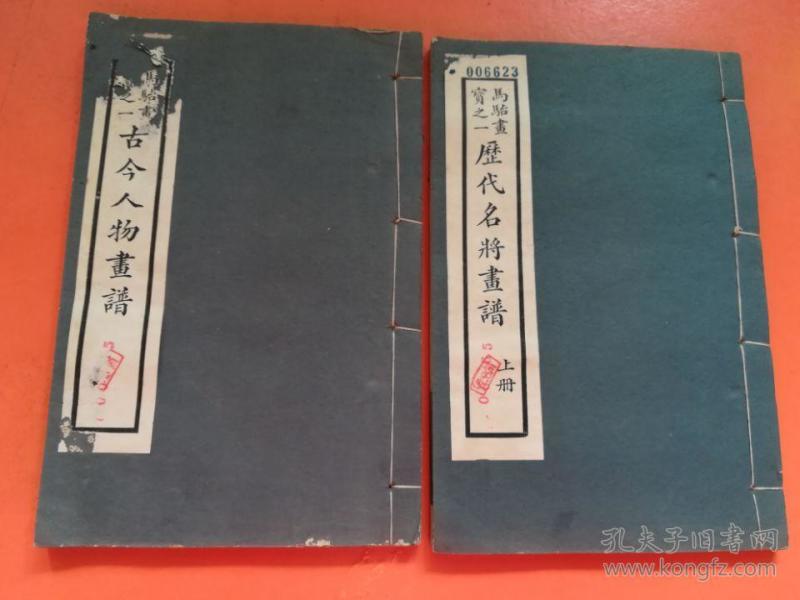 馬駘畫
之一
古今人物畫譜
006623
馬駘畫
寶之一
歷代名將畫譜
上册
孔夫子旧书网
www.kongfz.com